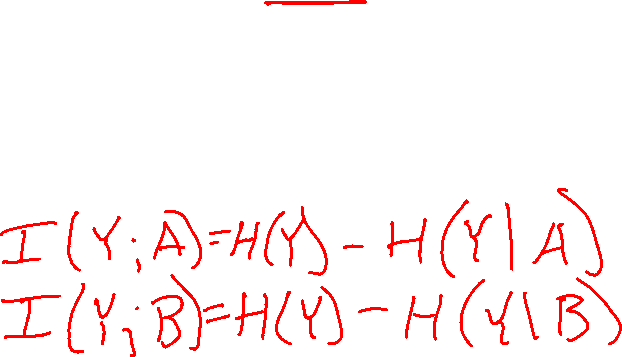 I(Y;A)=H(Y)-H(Y|A)
I(Y;B)=H(Y)-H(Y|B)